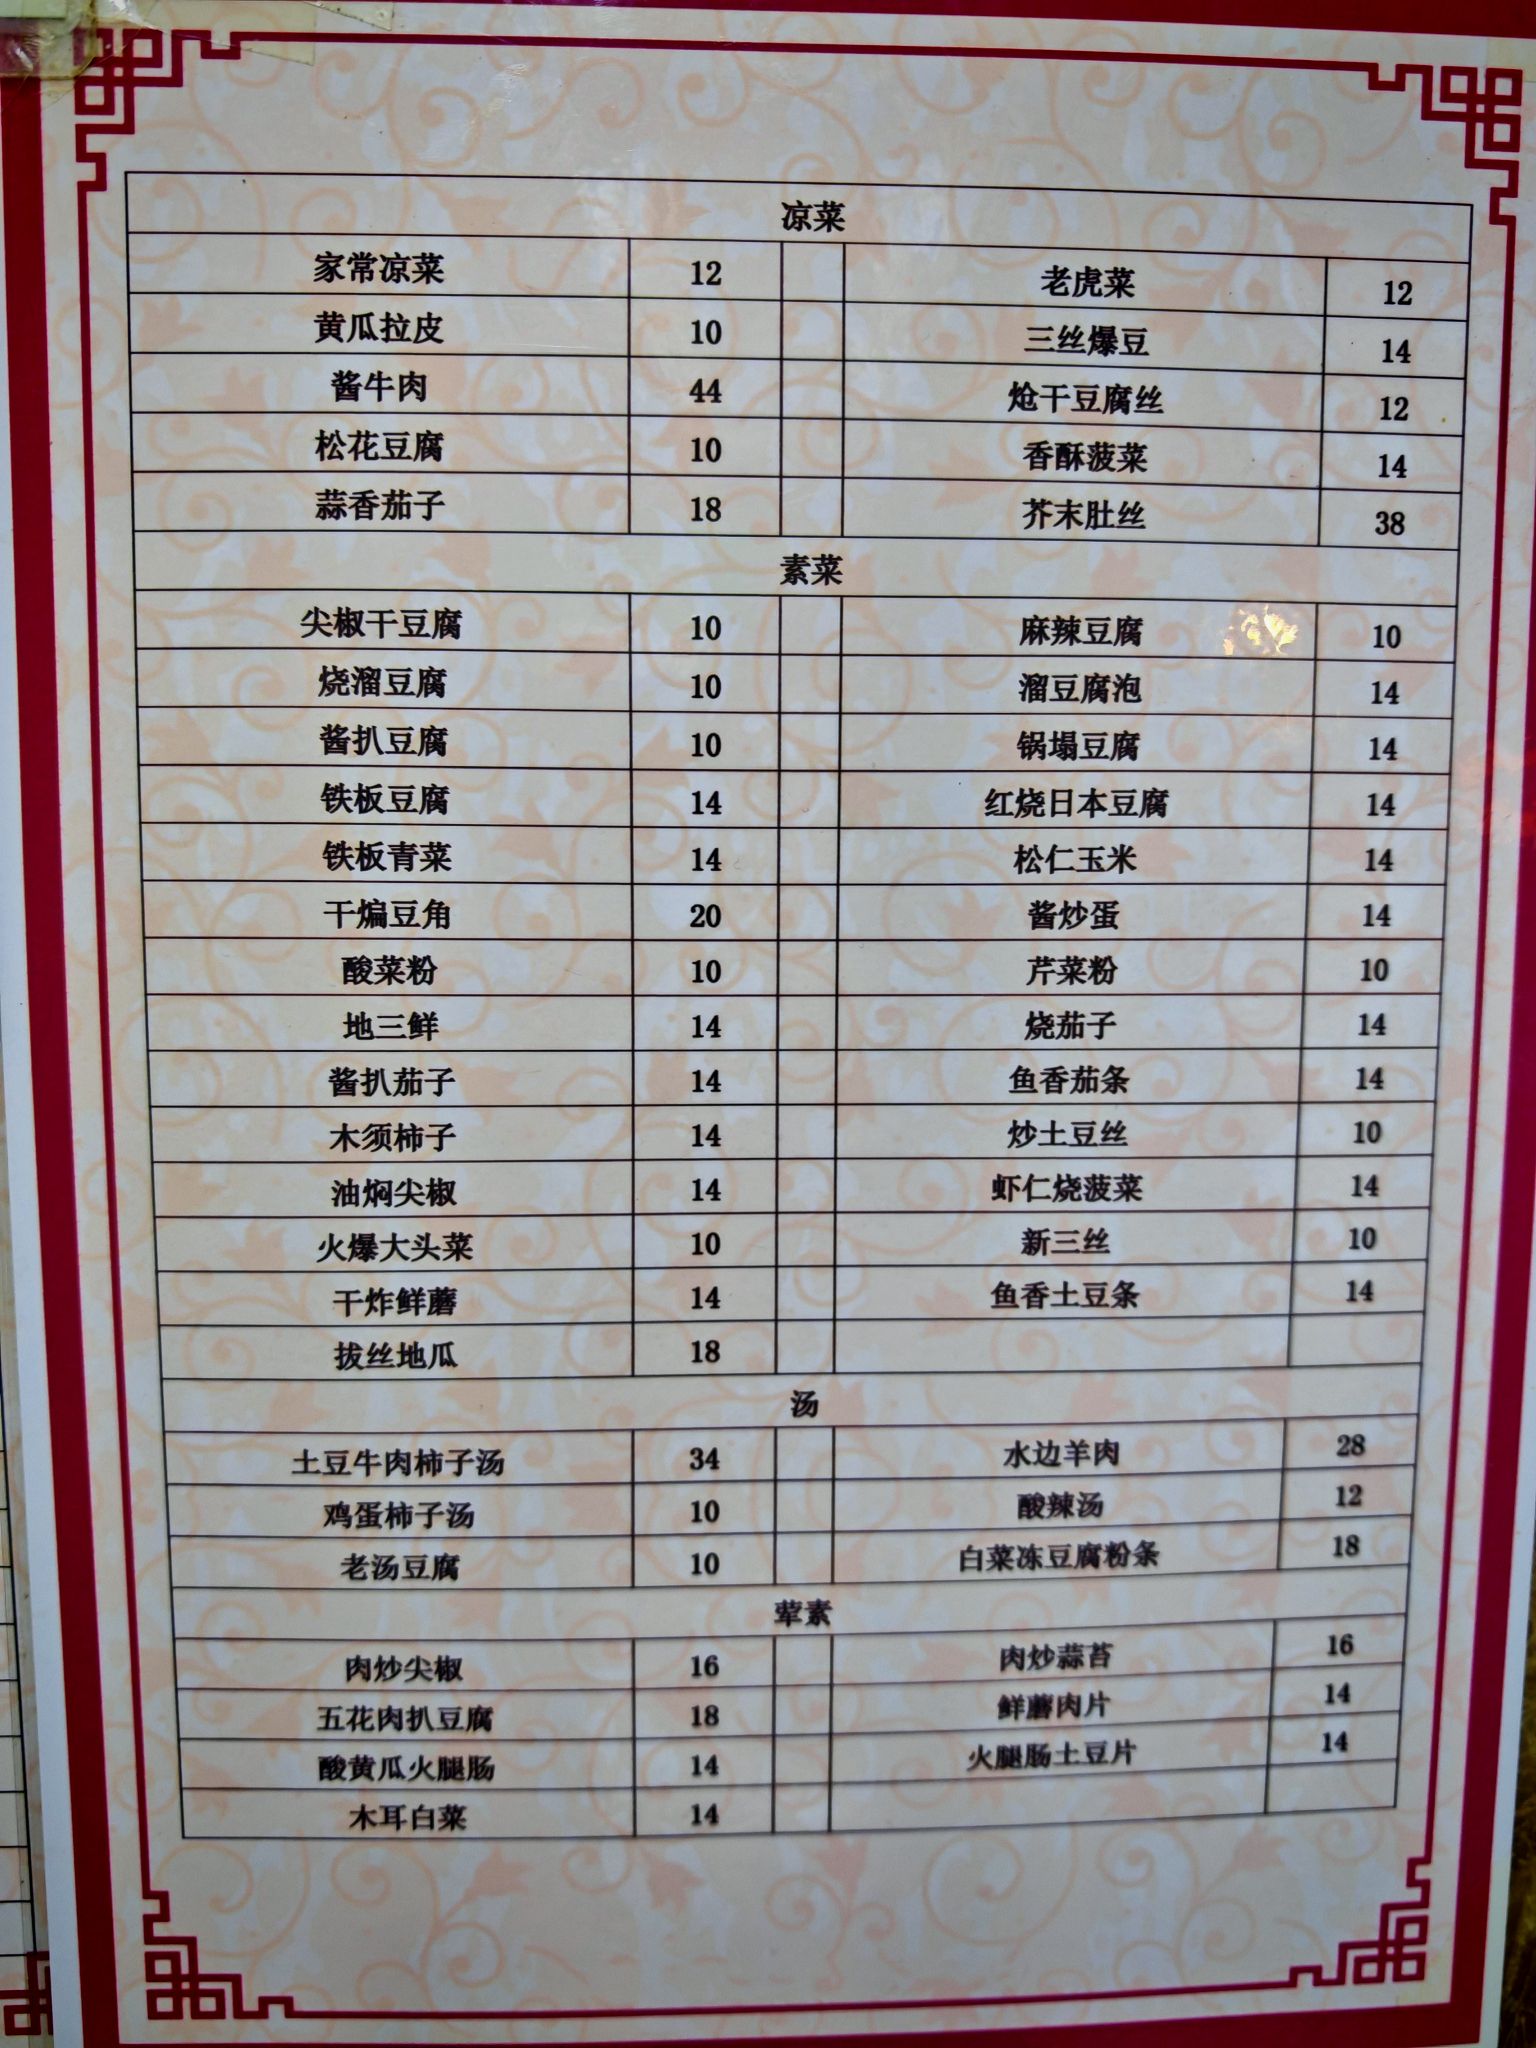 凉菜
家常凉菜 12 老虎菜 12
黄瓜拉皮 10 三丝爆豆 14
酱牛肉 44 炝干豆腐丝 12
松花豆腐 10 香酥菠菜 14
蒜香茄子 18 芥末肚丝 38
素菜
尖椒干豆腐 10 麻辣豆腐 10
烧溜豆腐 10 溜豆腐泡 14
酱扒豆腐 10 锅塌豆腐 14
铁板豆腐 14 红烧日本豆腐 14
铁板青菜 14 松仁玉米 14
干煸豆角 20 酱炒蛋 14
酸菜粉 10 芹菜粉 10
地三鲜 14 烧茄子 14
酱扒茄子 14 鱼香茄条 14
木须柿子 14 炒土豆丝 10
油焖尖椒 14 虾仁烧菠菜 14
火爆大头菜 10 新三丝 10
干炸鲜蘑 14 鱼香土豆条 14
拔丝地瓜 18
汤
土豆牛肉柿子汤 34 水边羊肉 28
鸡蛋柿子汤 10 酸辣汤 12
老汤豆腐 10 白菜冻豆腐粉条 18
荤素
肉炒尖椒 16 肉炒蒜苔 16
五花肉扒豆腐 18 鲜蘑肉片 14
酸黄瓜火腿肠 14 火腿肠土豆片 14
木耳白菜 14